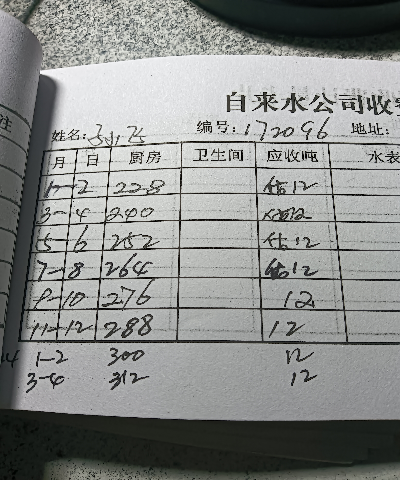 自来水公司收
姓名: 编号: 172096 地址:
注 月 日 厨房 卫生间 应收吨 水表
1-2 228 估12
3-4 240 12
5-6 252 估12
7-8 264 估12
9-10 276 12
11-12 288 12
1-2 300 12
3-4 312 12